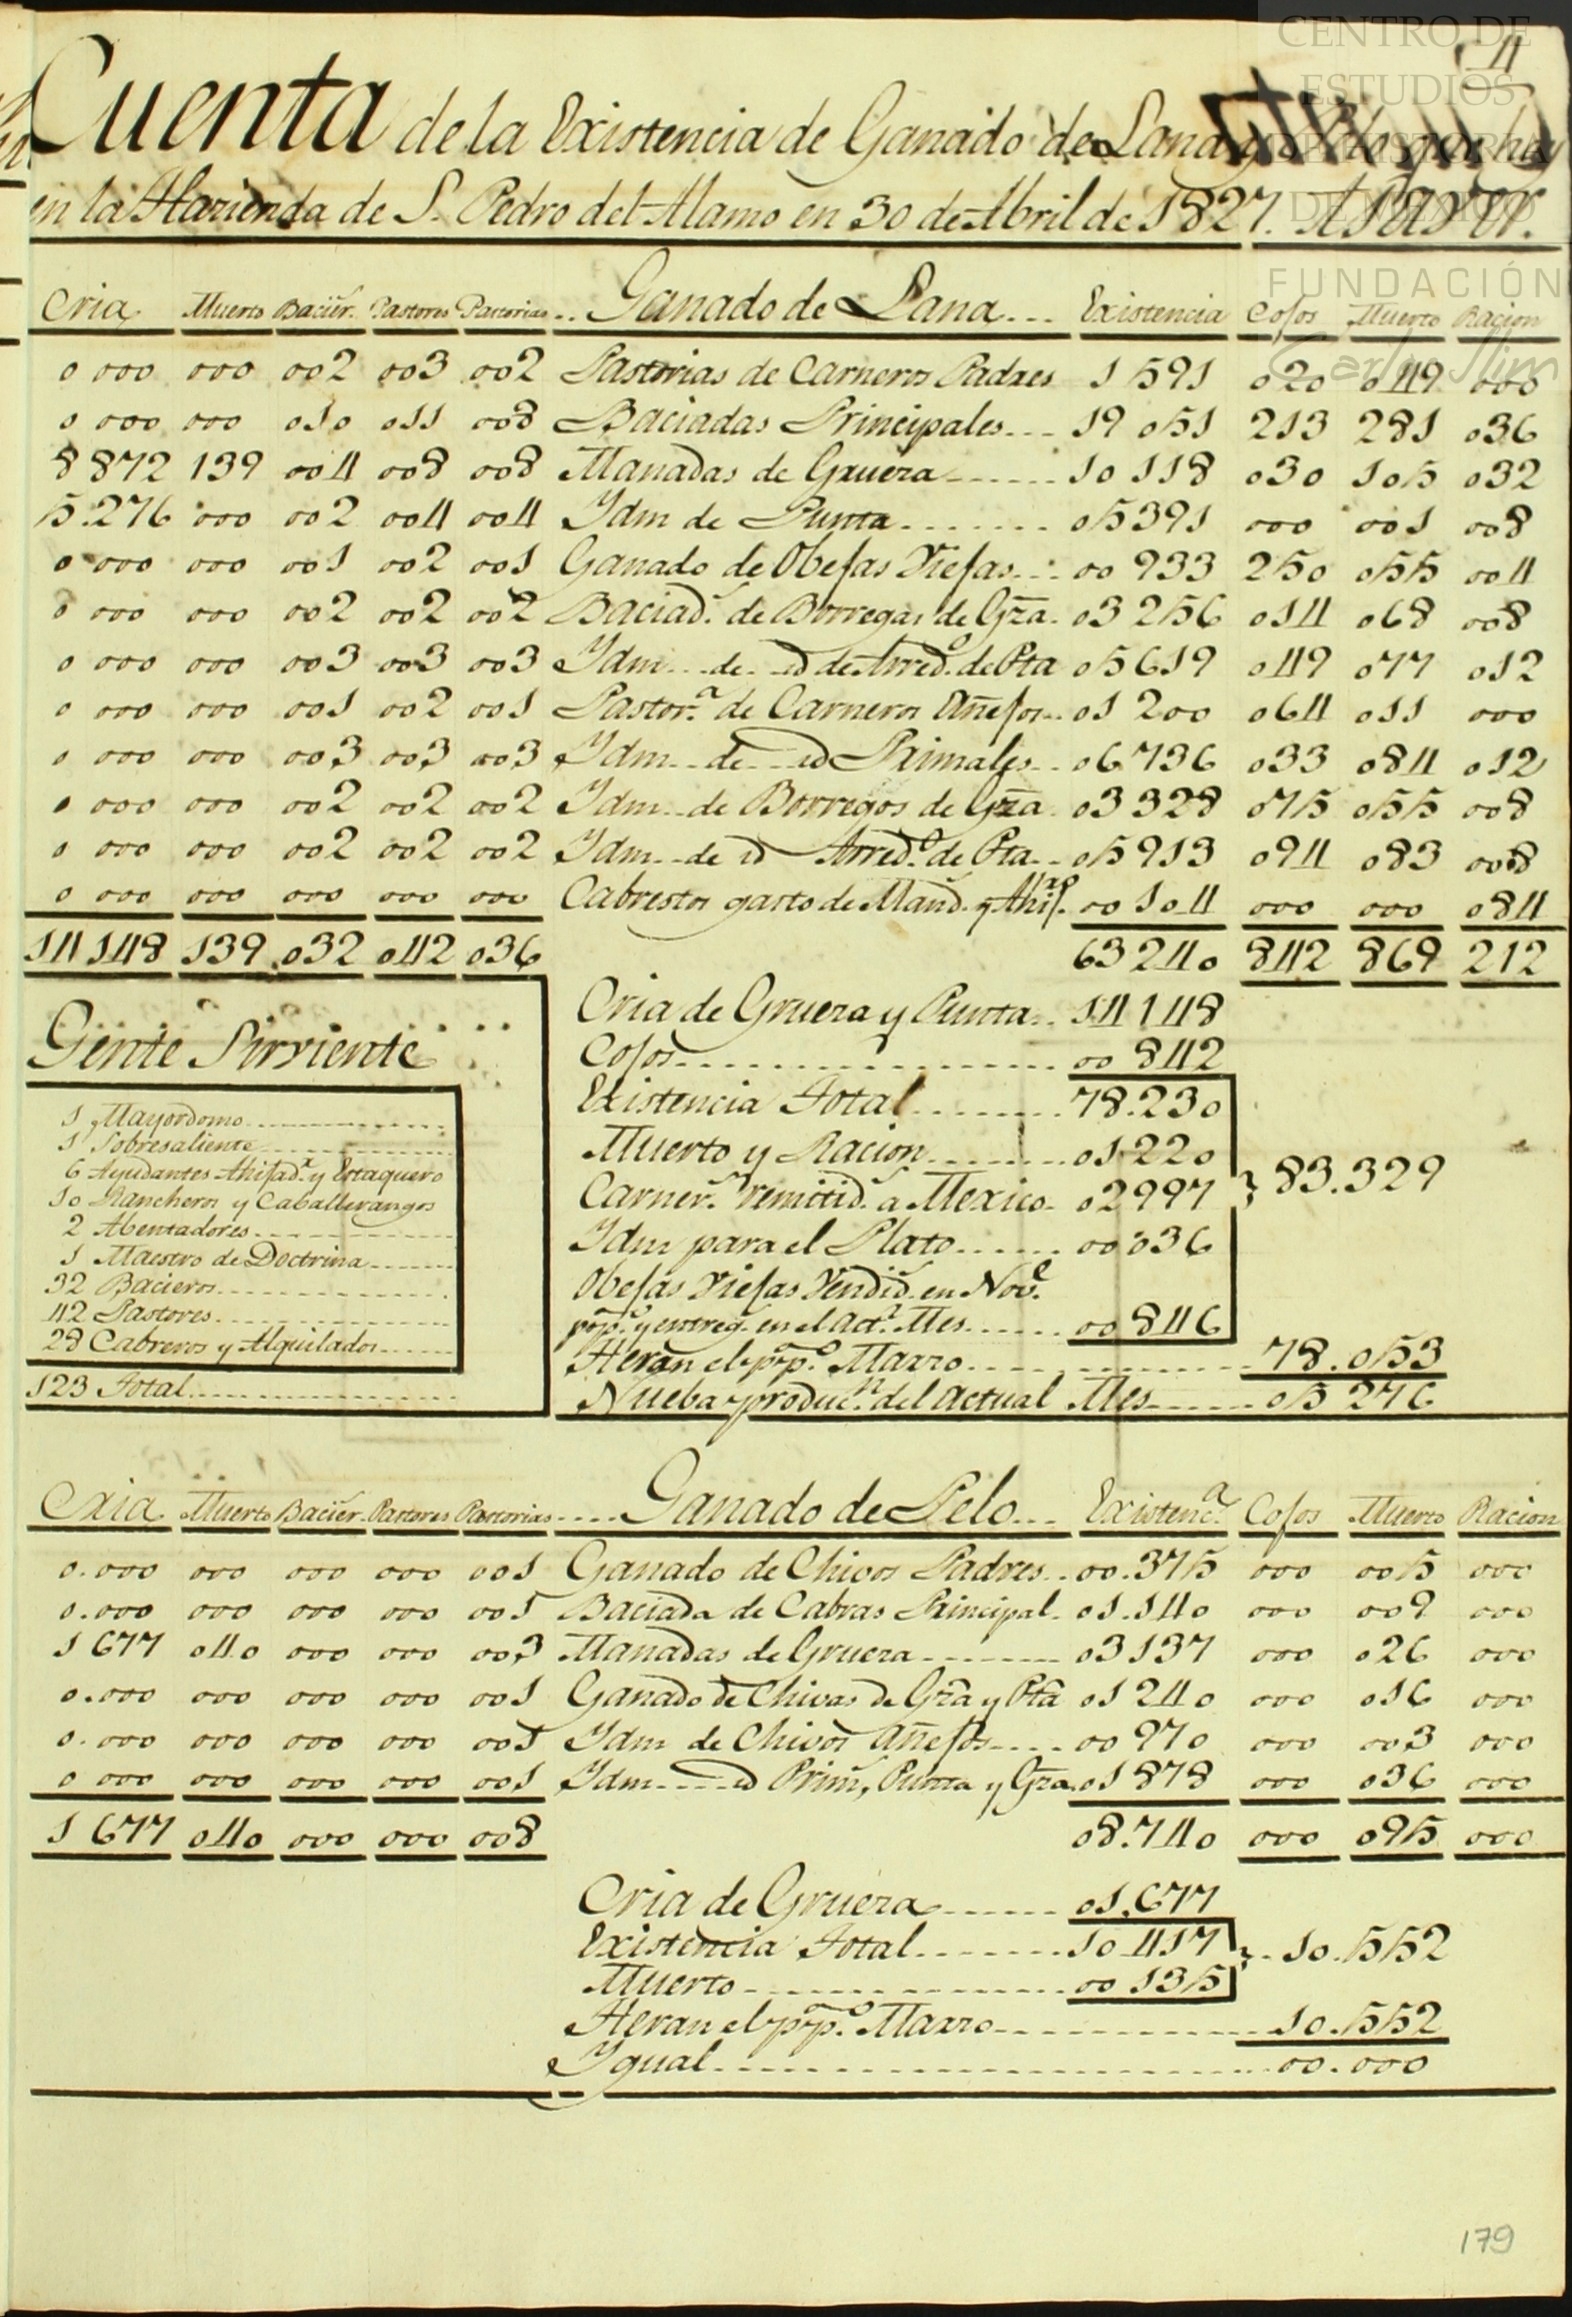 4
Cuenta de la Existencia de Ganado de Lana
en la Hazienda de S. Pedro del Alamo en 30 de Abril de 1827. A Saver.
Cria Muerto Bacier.s Pastores Pastorias .. Ganado de Lana ... Existencia Cojos Muerto Racion
0 000 000 002 003 002 Pastorias de Carneros Padres 1 591 020 049 000
0 000 000 010 011 008 Baciadas Principales ... 19 051 213 281 036
8 872 139 004 008 008 Manadas de Gruera ...... 10 118 030 105 032
5.276 000 002 004 004 Ydm de Punta ....... 05391 000 001 008
0 000 000 001 002 001 Ganado de Obejas Viejas ... 00 933 250 055 004
0 000 000 002 002 002 Baciad.s de Borregas de Gra. 03 256 014 068 008
0 000 000 003 003 003 Ydm ... de .. id de Arred.o de Pta 05619 049 077 012
0 000 000 001 002 001 Pastor.a de Carneros Añejos .. 01 200 064 011 000
0 000 000 003 003 003 Ydm .. de ... id Primales .. 06736 033 084 012
0 000 000 002 002 002 Ydm .. de Borregos de Gra. 03 328 075 055 008
0 000 000 002 002 002 Ydm .. de id Arred.o de Pta .. 05913 094 083 008
0 000 000 000 000 000 Cabrestos gasto de Mand. y Ahij. 00 104 000 000 084
14 148 139 032 042 036 63 240 842 869 212
Cria de Gruera y Punta .. 14 148
Cojos .................... 00 842
Existencia Total ......... 78.230
Muerto y Racion ........ 01 220
Carner.s remitid.s a Mexico . 02997 } 83.329
Ydm para el Plato ...... 00 036
Obejas Viejas Vendid.s en Nov.e
pp.o y entreg.s en el act.l Mes ...... 00 846
Heran el pp.o Marzo .................. 78.053
Nueba produc.n del actual Mes ..... 05 276
Gente Sirviente
1 Mayordomo ..............
1 Sobresaliente ..............
6 Ayudantes Ahijad.r y Estaquero
10 Rancheros y Caballerangos
2 Abentadores ..............
1 Maestro de Doctrina .......
32 Bacieros ..............
42 Pastores ..............
28 Cabreros y Alquilados ......
123 Total ..............
Cria Muerto Bacier.s Pastores Pastorias .... Ganado de Pelo ... Existenc.a Cojos Muerto Racion
0.000 000 000 000 001 Ganado de Chivos Padres .. 00.375 000 005 000
0.000 000 000 000 001 Baciada de Cabras Principal . 01.140 000 009 000
1 677 040 000 000 003 Manadas de Gruera ........ 03 137 000 026 000
0.000 000 000 000 001 Ganado de Chivas de Gra y Pta 01 240 000 016 000
0.000 000 000 000 001 Ydm de Chivos Añejos .... 00 970 000 003 000
0 000 000 000 000 001 Ydm .... id Prim.s Punta y Gra. 01 878 000 036 000
1 677 040 000 000 008 08.740 000 095 000
Cria de Gruera ...... 01.677
Existencia Total ....... 10 417 } .. 10.552
Muerto ................ 00 135
Heran el pp.o Marzo .............. 10.552
Ygual .......................... 00.000
179
CENTRO DE
ESTUDIOS
DE HISTORIA
DE MÉXICO
FUNDACIÓN
Carlos Slim